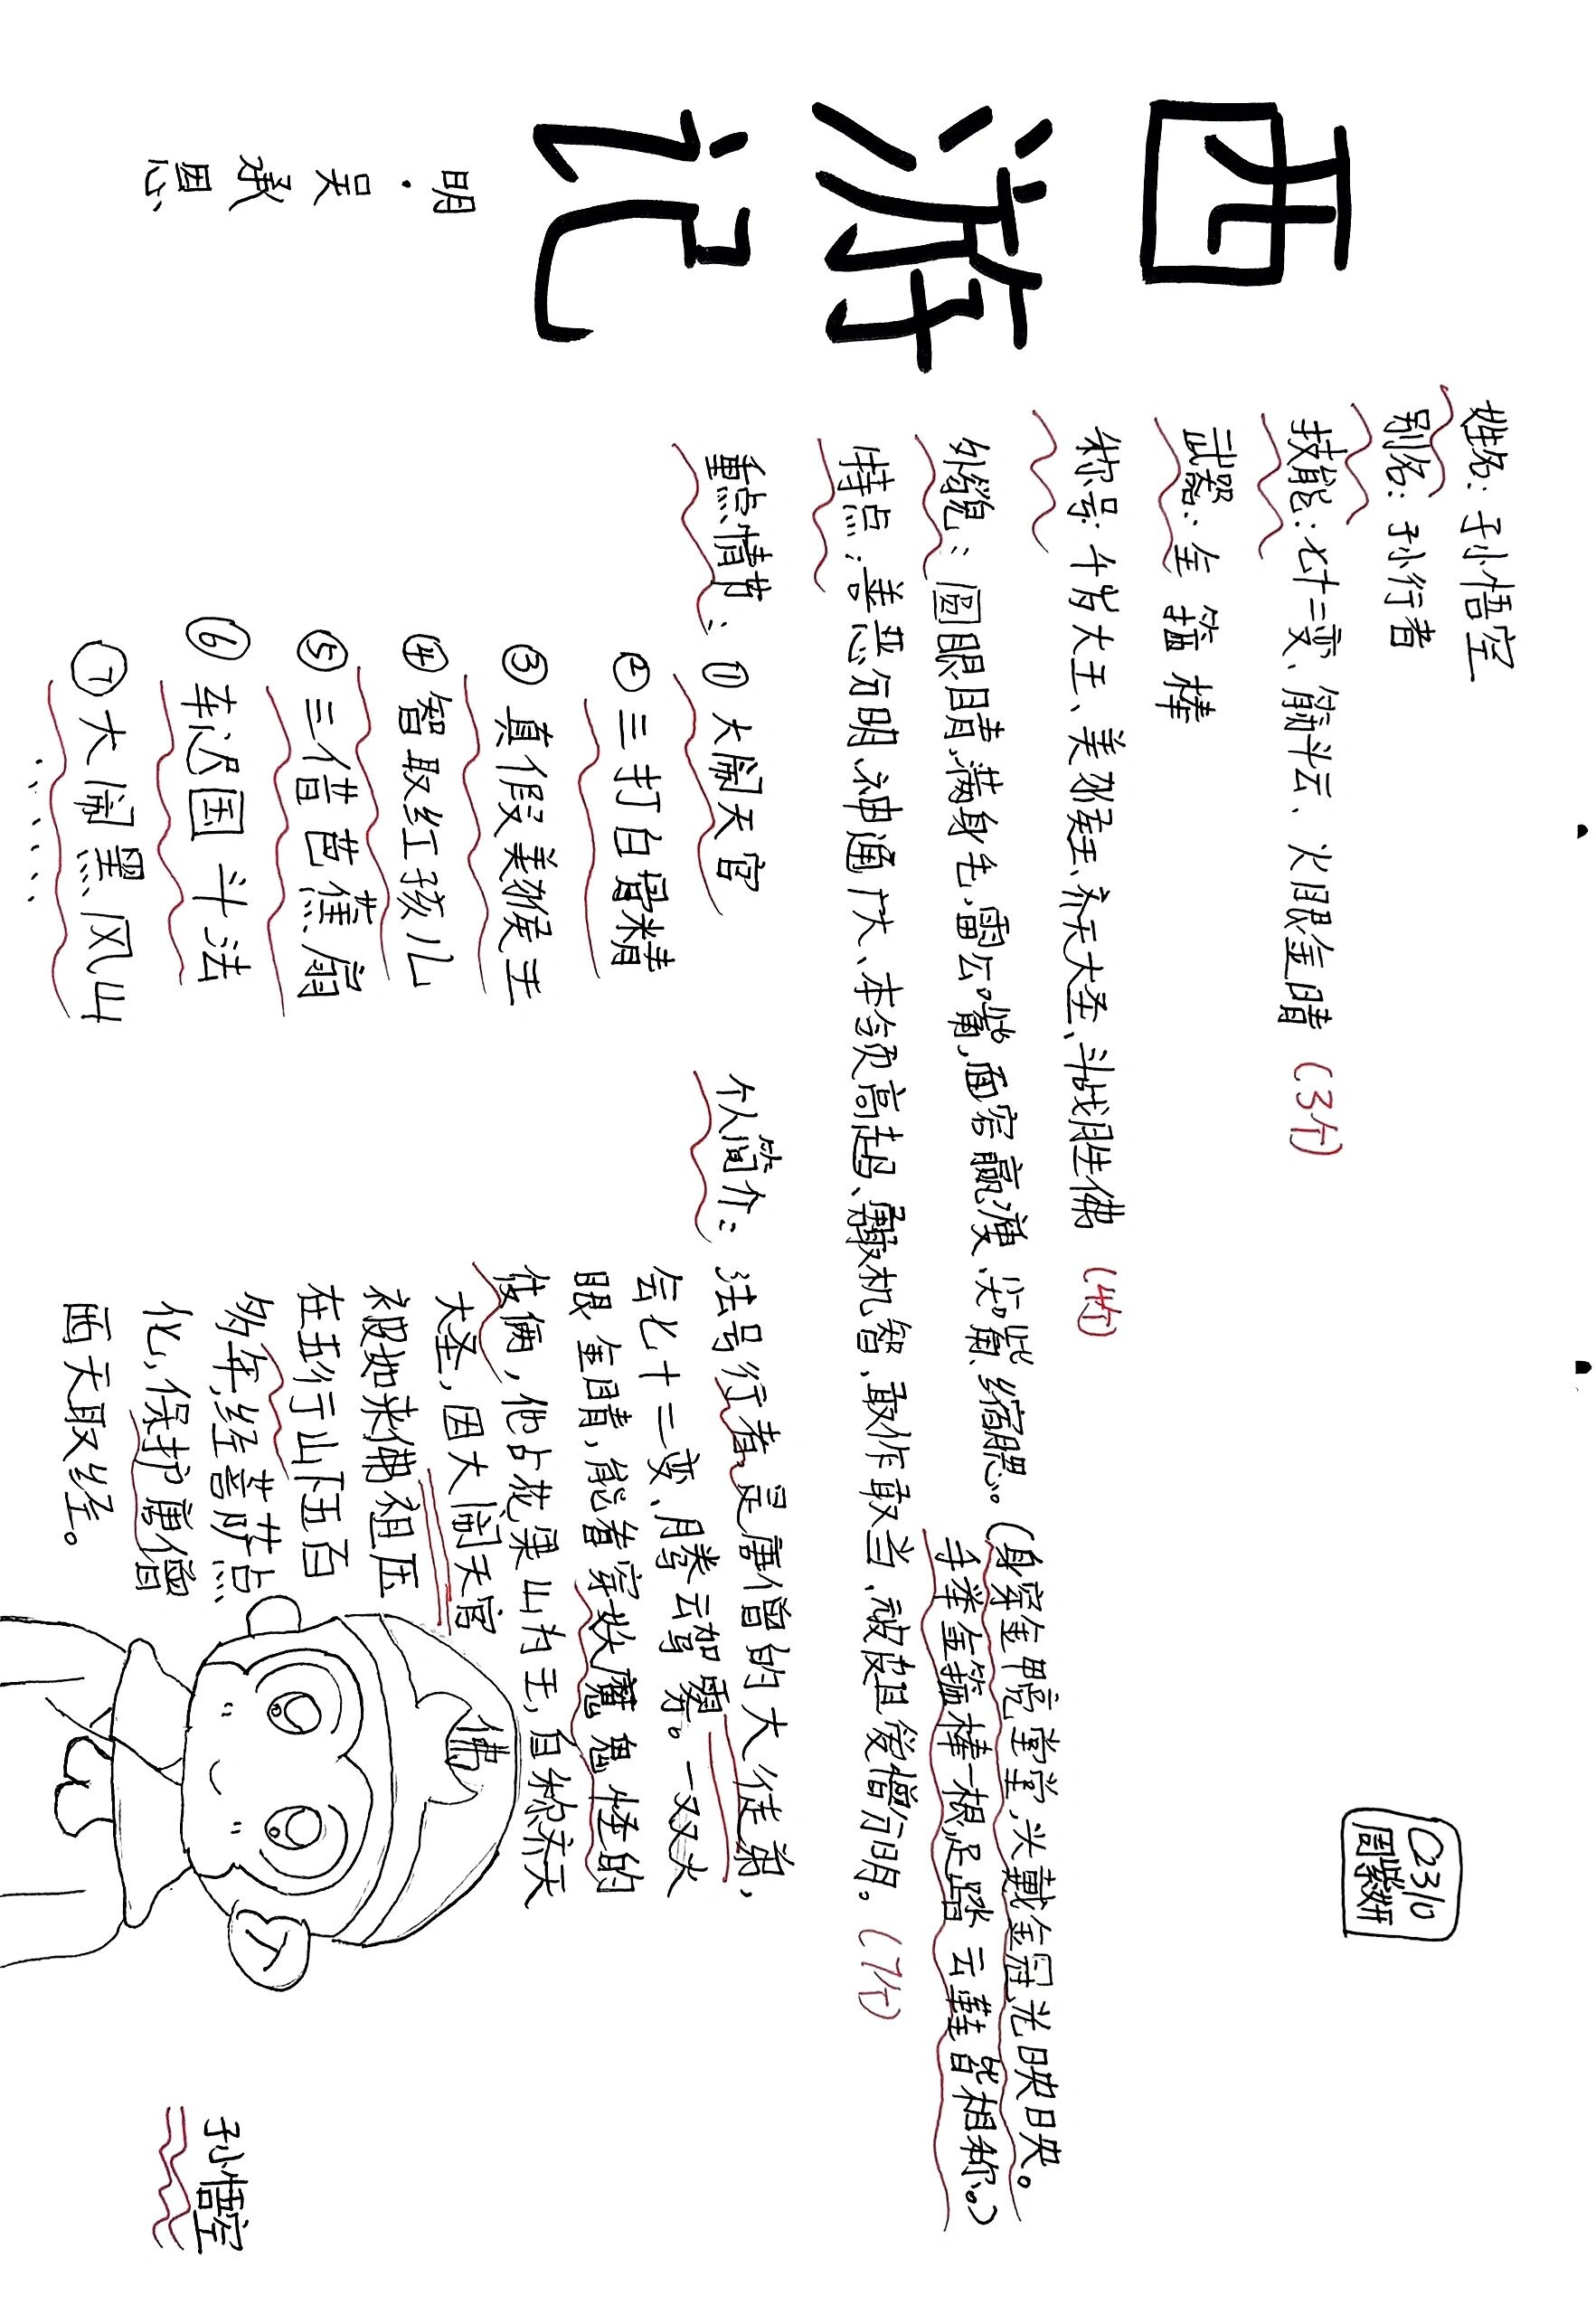 西游记
明·吴承恩
C2310
周紫妍
姓名：孙悟空
别名：孙行者
技能：七十二变、筋斗云、火眼金睛（3个）
武器：金箍棒
称号：千岁大王、美猴王、齐天大圣、斗战胜佛（4个）
外貌：圆眼睛，满身毛，雷公嘴，面容羸瘦、尖嘴、缩腮。（身穿金甲亮堂堂，头戴金冠光映映。
手举金箍棒一根，足踏云鞋皆相称。）
特点：善恶分明、神通广大、本领高超、勇敢机智、敢作敢当、顽皮且爱憎分明。（7个）
重点情节：①大闹天宫
②三打白骨精
③真假美猴王
④智取红孩儿
⑤三借芭蕉扇
⑥车迟国斗法
⑦大闹黑风山
……
个人简介：法号行者，是唐僧的大徒弟，
会七十二变、腾云驾雾。一双火
眼金睛，能看穿妖魔鬼怪的
伎俩，他占花果山为王，自称齐天
大圣，因大闹天宫
被如来佛祖压
在五行山下五百
多年，经菩萨点
化，保护唐僧
西天取经。
佛
孙悟空